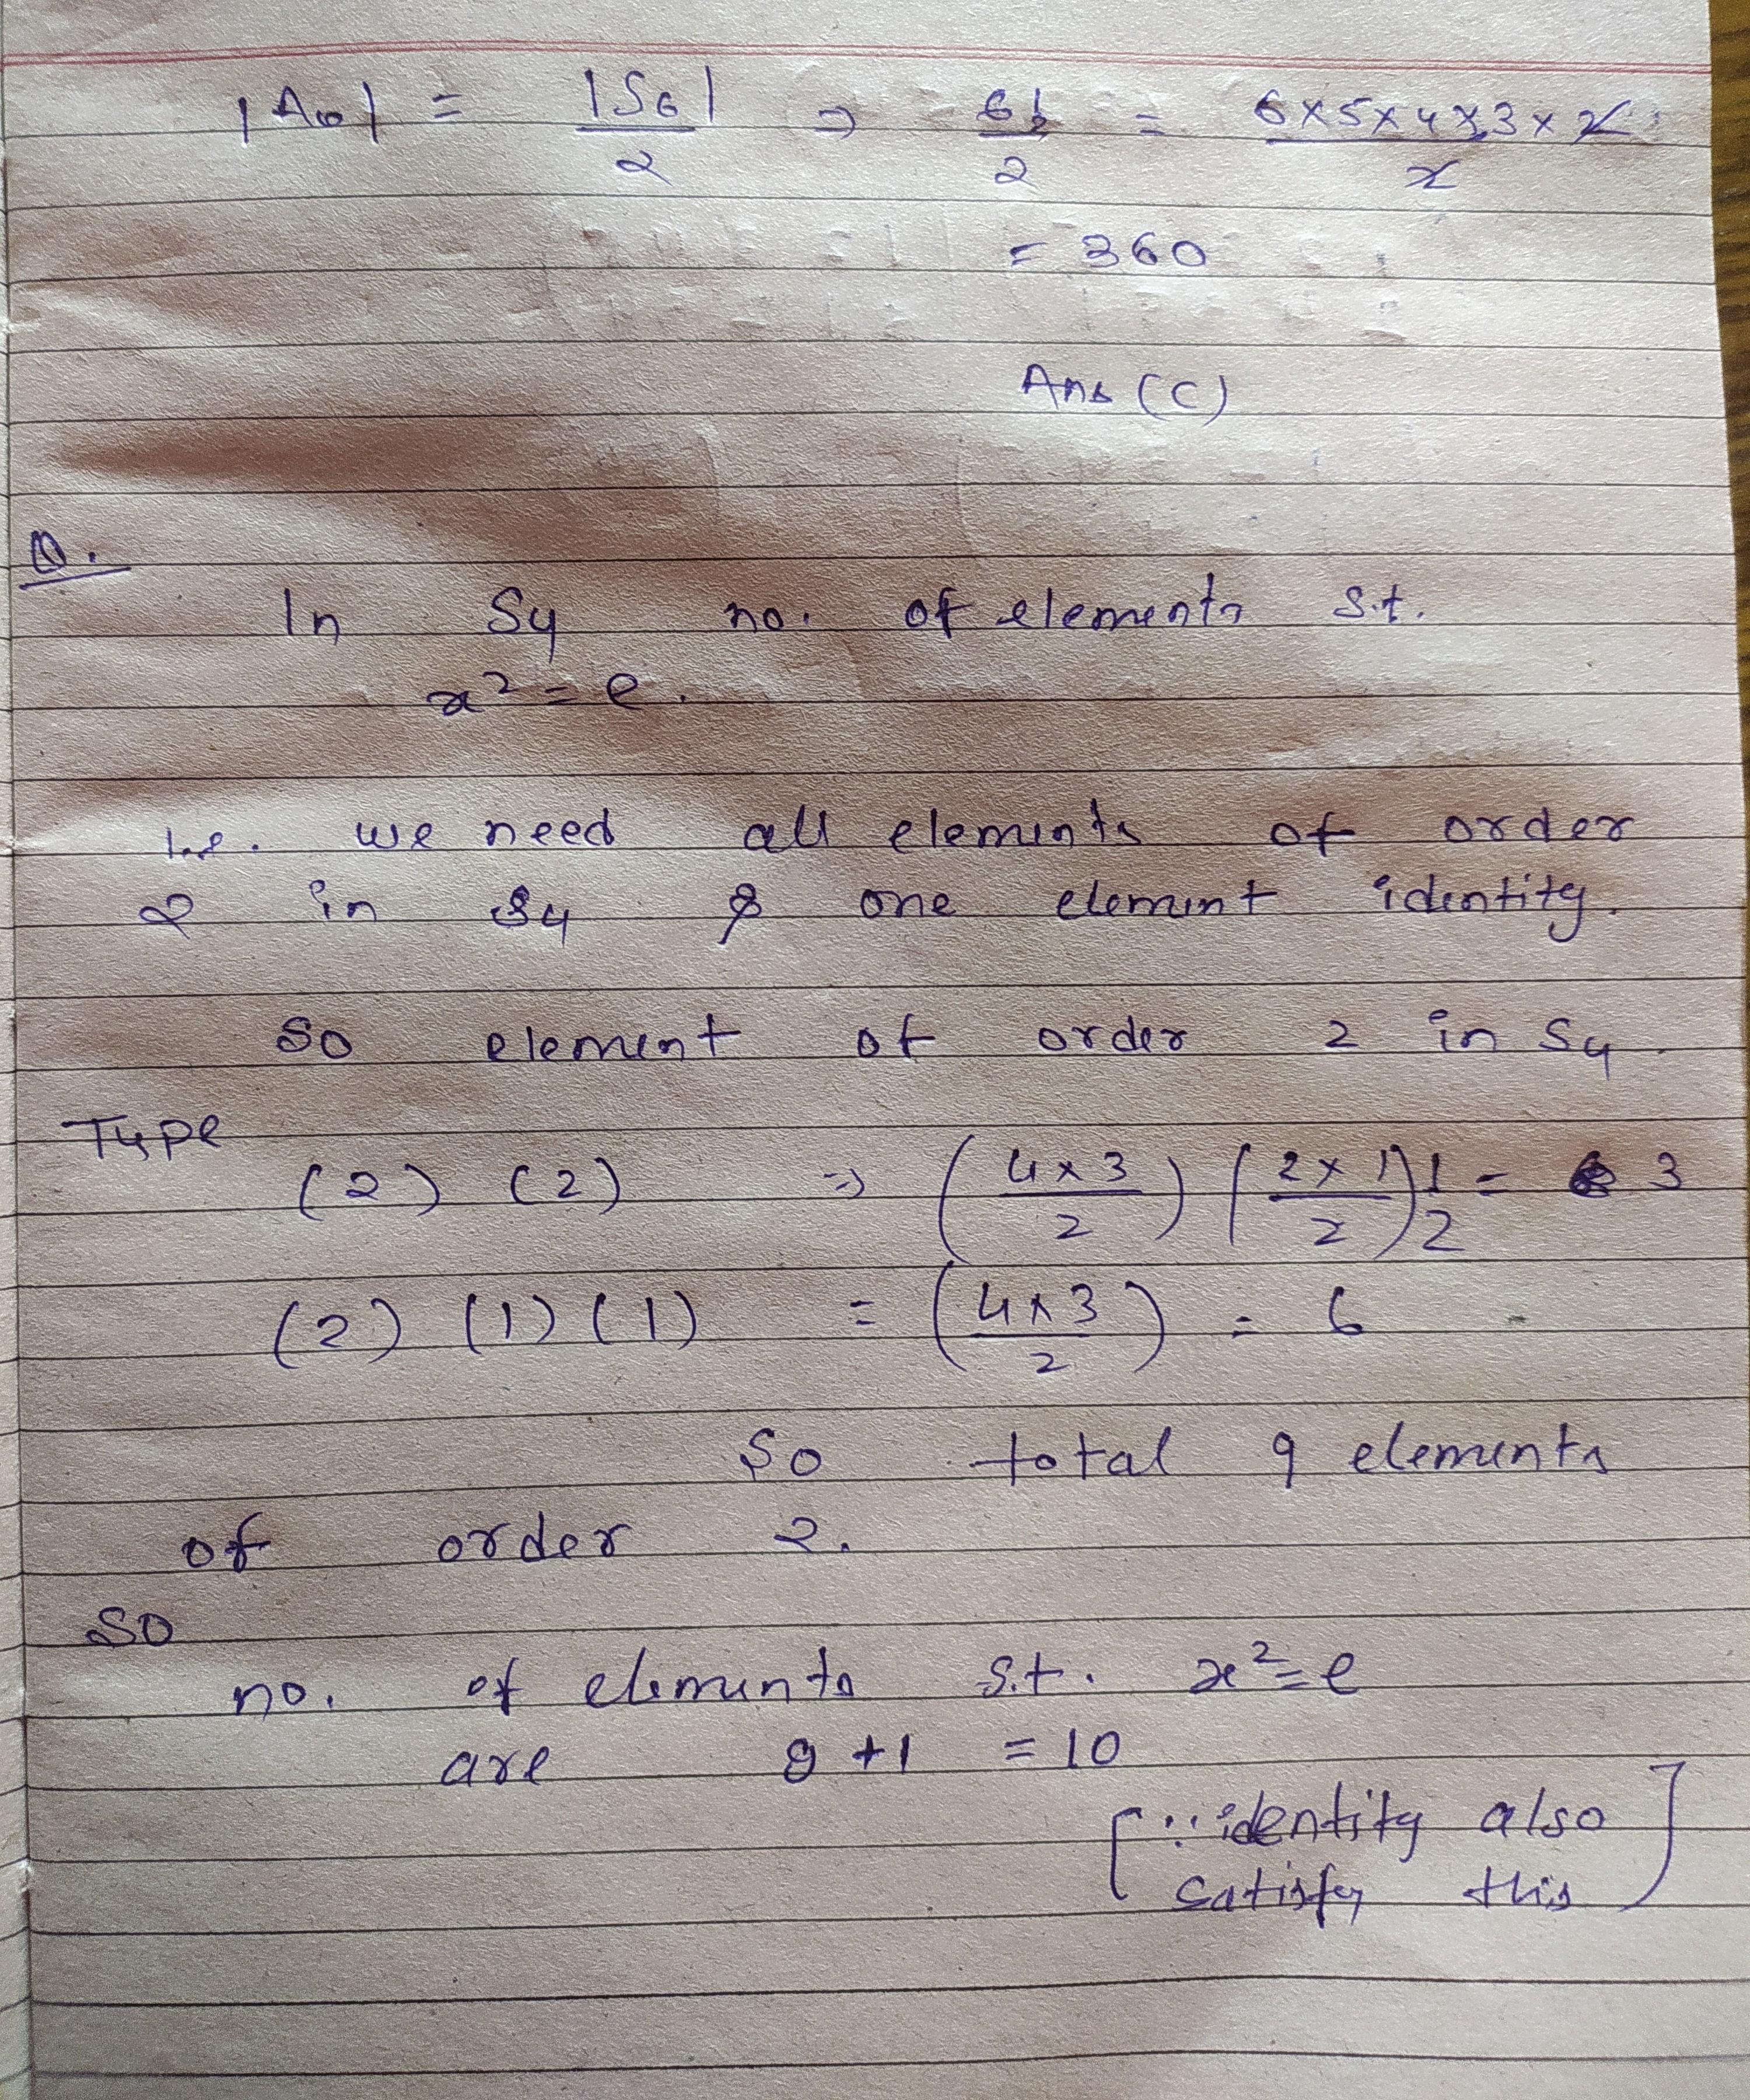 |A6| = |S6|/2 ⇒ 6!/2 = 6×5×4×3×2/2
= 360
Ans (C)
Q.
In S4 no. of elements s.t.
x² = e.
i.e. we need all elements of order
2 in S4 & one element identity.
So element of order 2 in S4.
Type
(2) (2) ⇒ (4×3/2) (2×1/2) 1/2 = 3
(2) (1) (1) = (4×3/2) = 6
So total 9 elements
of order 2.
SO
no. of elements s.t. x² = e
are 9 + 1 = 10
[∵ identity also
satisfy this]